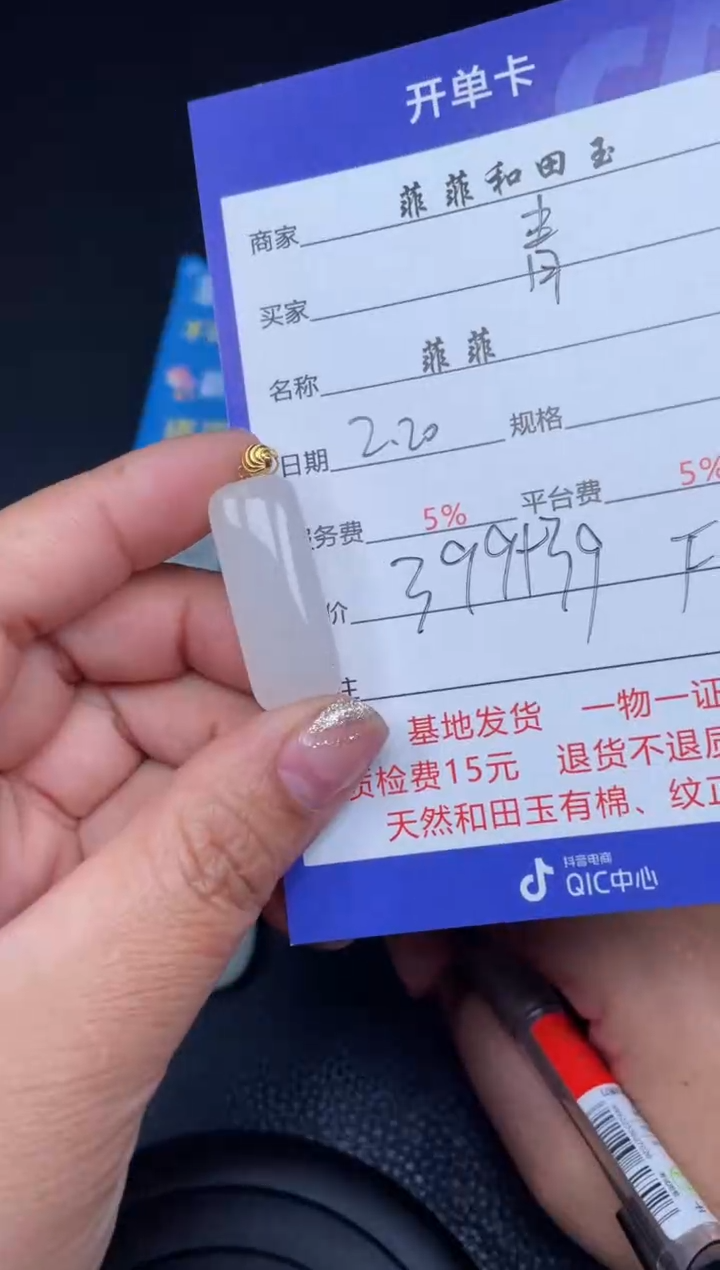 开单卡
商家 菲菲和田玉
买家 青
名称 菲菲
日期 2.20 规格
务费 5% 平台费 5%
价 399+39 F
主
基地发货 一物一证
质检费15元 退货不退质
天然和田玉有棉、纹正
抖音电商
QIC中心